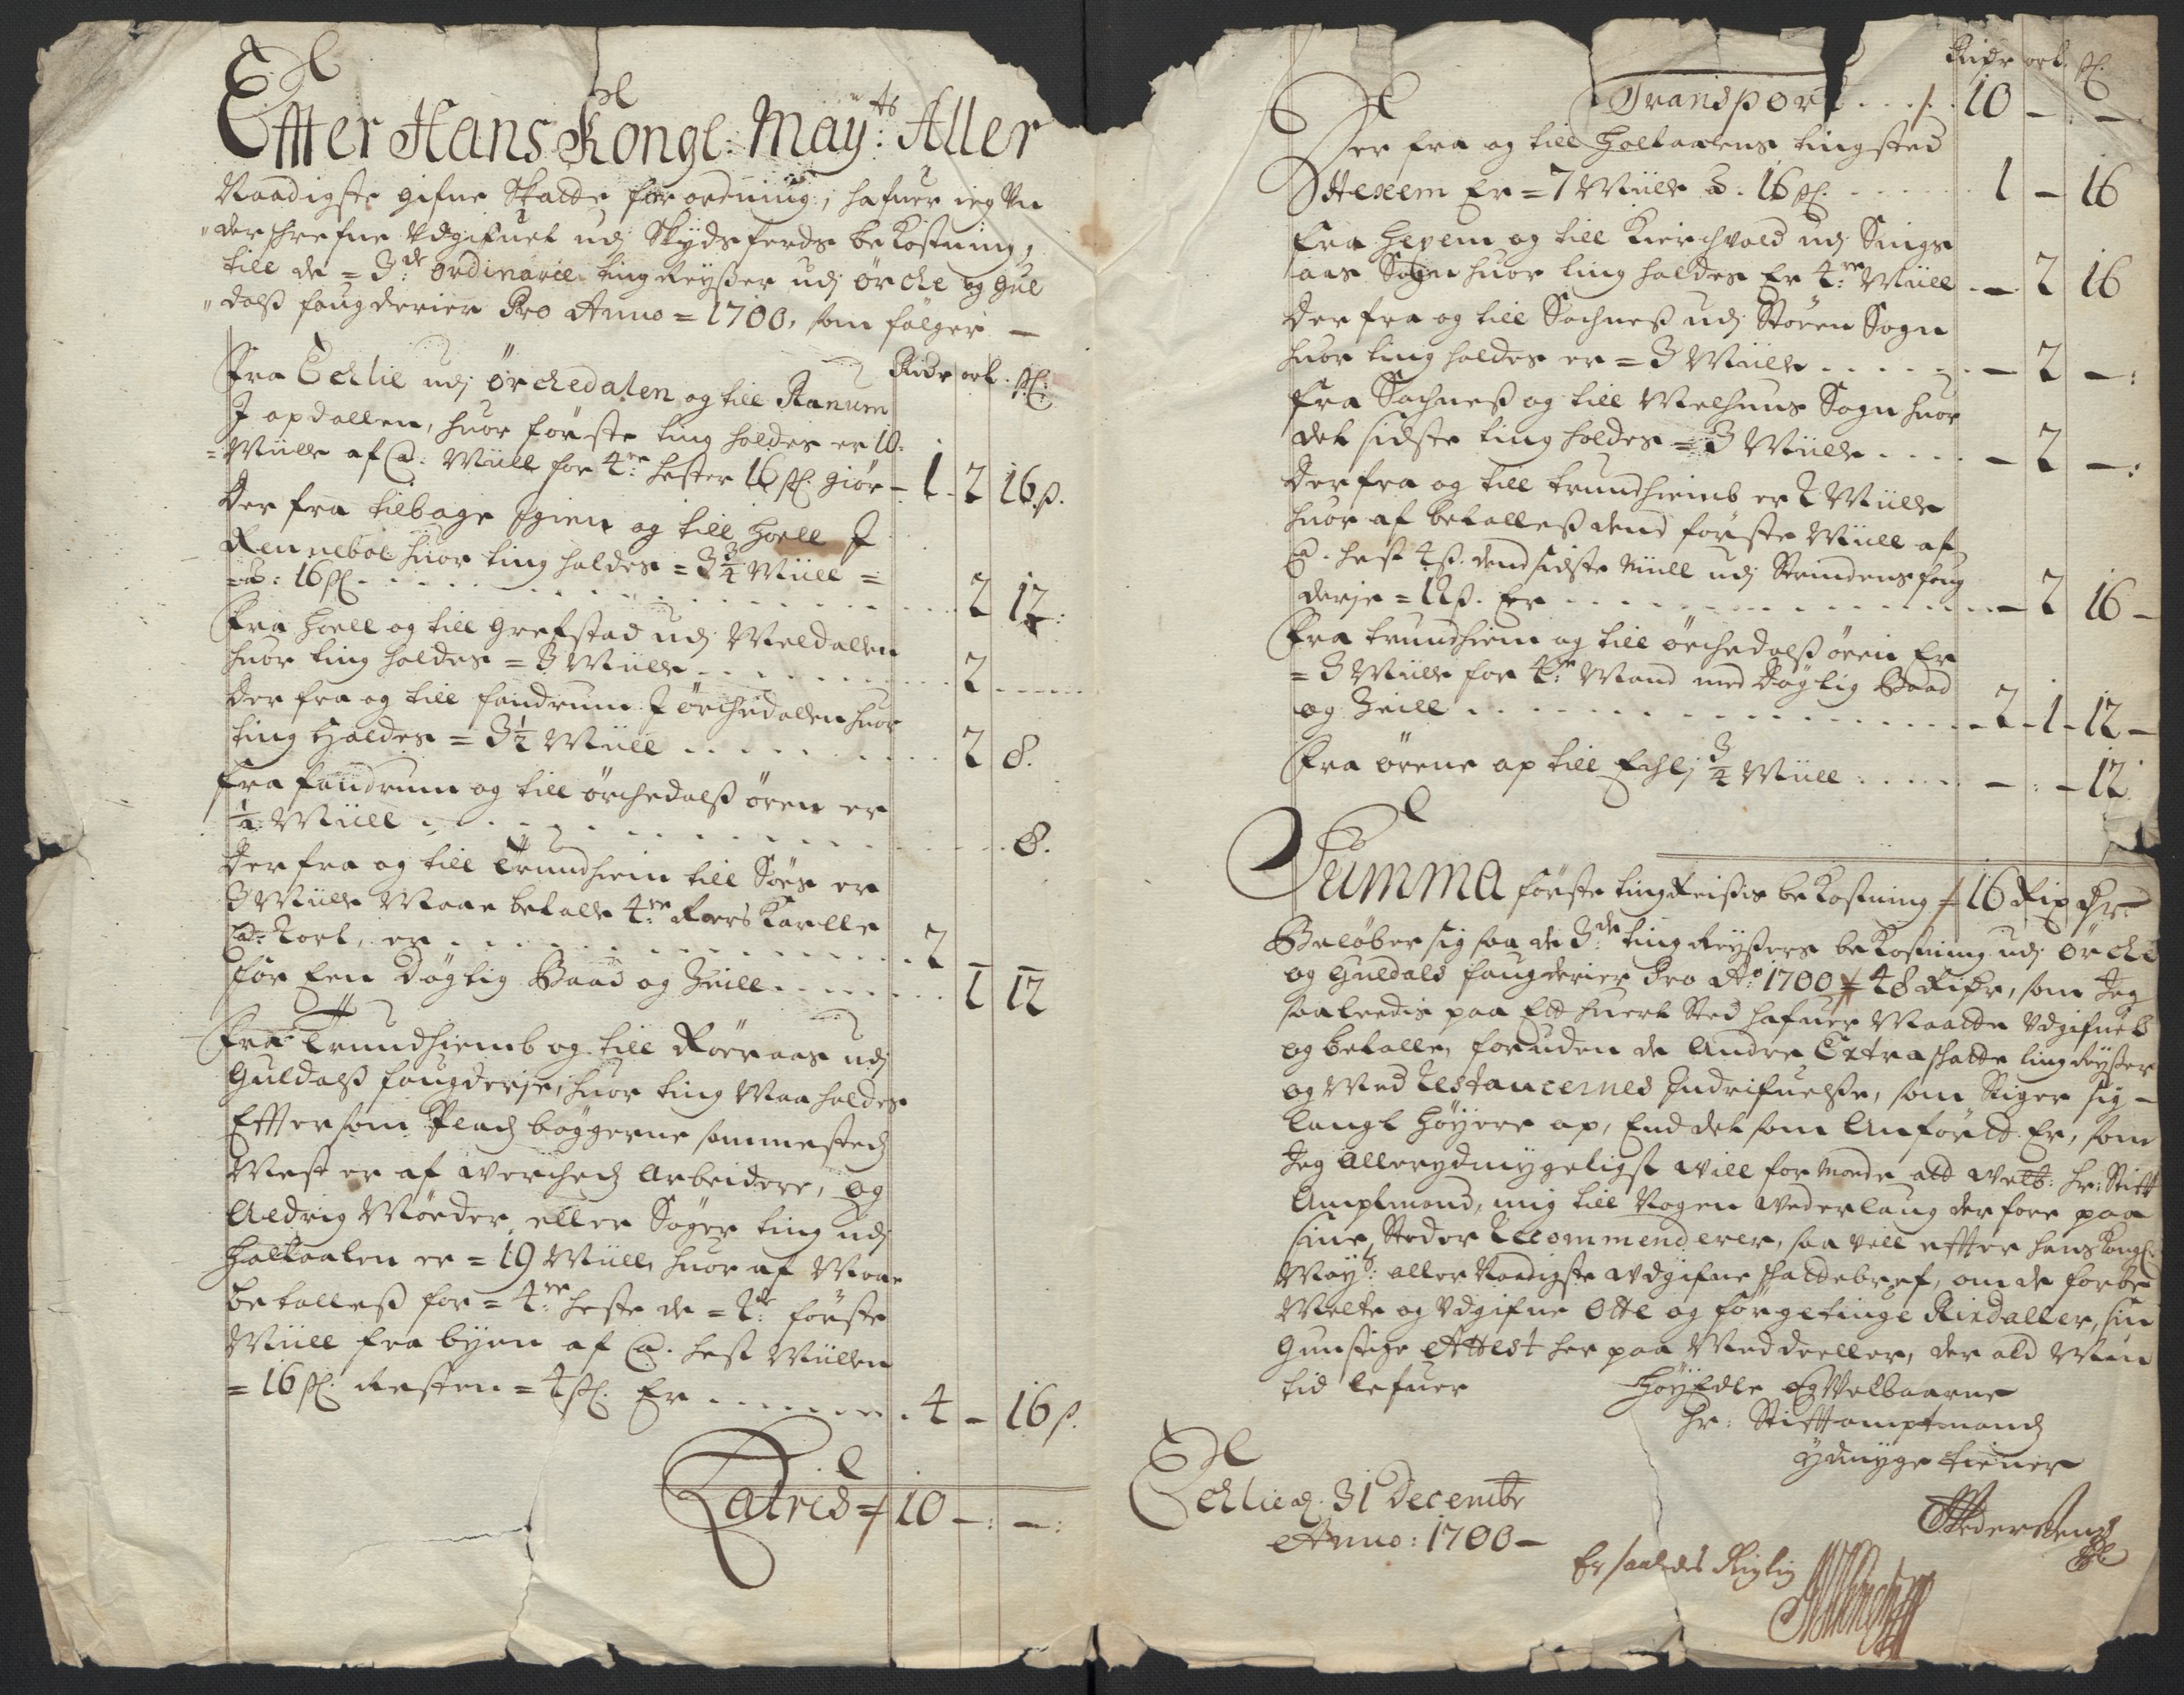 Effter Hans Kongl: May:ts Aller
Naadigste gifne Skatte forordning, hafuer ieg Un
"derskrefne Udgifuet udj Skydsferds bekostning,
till de = 3:de ordinarie ting Reyßer udj örche og Gul
"dalß fougderier Pro Anno = 1700, som fölger —
Rixdr ort. sk:
Fra Echlie udj örchedalen og till Ranum
J opdallen, huor förste ting holdes er 10:
= Miille af @: Miill for 4:re hester 16 sk: giör — 1 - 2 16 ß.
Der fra tilbage igien og till Hoell J
Renneboe huor ting holdes = 3 3/4 Miill =
= a: 16 sk . . . . . 2 12:
Fra Hoell og till Grefstad udj Meldallen
huor ting holdes = 3 Miille . . . . . 2 . . . . .
Der fra og till fandrum J örchedallen huor
ting Holdes = 3 1/2 Miill . . . . . 2 8.
Fra fandrum og till örchedalß ören er
1/2 Miill . . . . . 8.
Der fra og till Trundhiem till Söes er
3 Miille Maae betalle 4:re Roers Karlle
@: 2 ort, er . . . . . 2 —
for Een Döglig Baad og Seill . . . . . 1 12
Fra Trundhiemb og till Röraas udj
Guldalß fougderje, huor ting Maa holdes
Effter som Pladz böggerne sammestedz
Mest er af Verchedz Arbeidere, og
Aldrig Möeder eller Söger ting udj
Holtaalen er = 19 Miille huor af Maae
betalleß for = 4:re heste de = 2:de förste
Miill fra byen af @. hest Miillen
= 16 sk: Resten = 4 sk: Er . . . . . 4 — 16 ß.
Latris = 10 —: —:
Rixdr ort. sk:
Transport . . . 10 — . —
Der fra og till Holtaalens tingsted
Hexem Er = 7 Miille a: 16 sk: . . . . . 1 — 16
Fra Hexem og till Kirchvold udj Sings
aas Sogn huor ting holdes Er 4:re Miill . — 2 16
Der fra og till Sochneß udj Stören Sogn
huor ting holdes er = 3 Miille . . . . . — 2 —:
Fra Sochneß og till Melhuus Sogn huor
det sidste ting holdes = 3 Miille . . . . — 2 —:
Der fra og till trundhiemb er 2 Miille
huor af betalleß dend förste Miill af
@. hest 4 ß. dend sidste Miill udj Strindens foug
derje = 12 ß. Er . . . . . — 2 16 —
Fra trundhiem og till örchedalß ören Er
= 3 Miille for 4:re Mand med Döglig Baad
og Seill . . . . . 2 - 1 - 12 —
Fra örene op till Echlj 3/4 Miill . . . . . — : — 12
Summa förste tingReißis bekostning = 16 Rix dr:
Belöber sig saa de 3:de ting Reyßers bekostning udj örche
og Guldals fougderier Pro Ao: 1700 = 48 Rixdr, som Jeg
saaledis paa Ett huert Sted hafuer Maatte Udgifuet
og betalle, foruden de Andre Extra skatte ting Reyßer
og Med Restancernes Inddrifuelße, som Stiger sig —
langt Höyere op, End det som Anfördt Er, som
Jeg Allerydmygeligst will formode att Welb: Hr: Stifft
Amptmand, mig till Nogen Wederlaug derfore paa
sine Steder Recommenderer, saa vell effter hans Kongl:
May:ts aller Naadigste udgifne skattebref, om de forbe
Melte og Udgifne Otte og förgetinge Rixdaller, sin
Gunstige Attest her paa Meddeeller, der ald Min
tid lefuer
HöyEdle og Velbaarne
Hr: Stifftamptmandz
ydmyge tiener
Echlie d. 31 Decembr
Anno: 1700 —
Er saaledes Rigtig